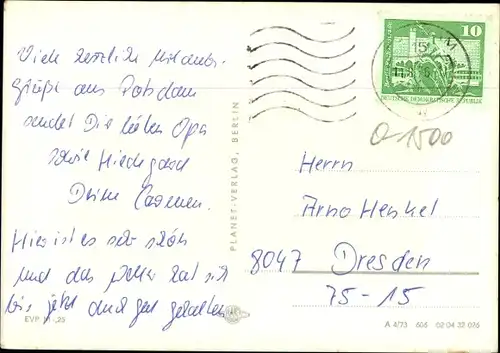 Viele herzliche Urlaubs-
grüße aus Potsdam
sendet Dir lieber Opa
sowie Hiedegard
Deine Carmen.
Hier ist es sehr schön
und das Wetter hat sich
bis jetzt auch gut gehalten.
EVP M -,25
PLANET-VERLAG, BERLIN
10
DEUTSCHE DEMOKRATISCHE REPUBLIK
15
O-1500
Herrn
Arno Henkel
8047 Dresden
75-15
A 4/73 605 02 04 32 076